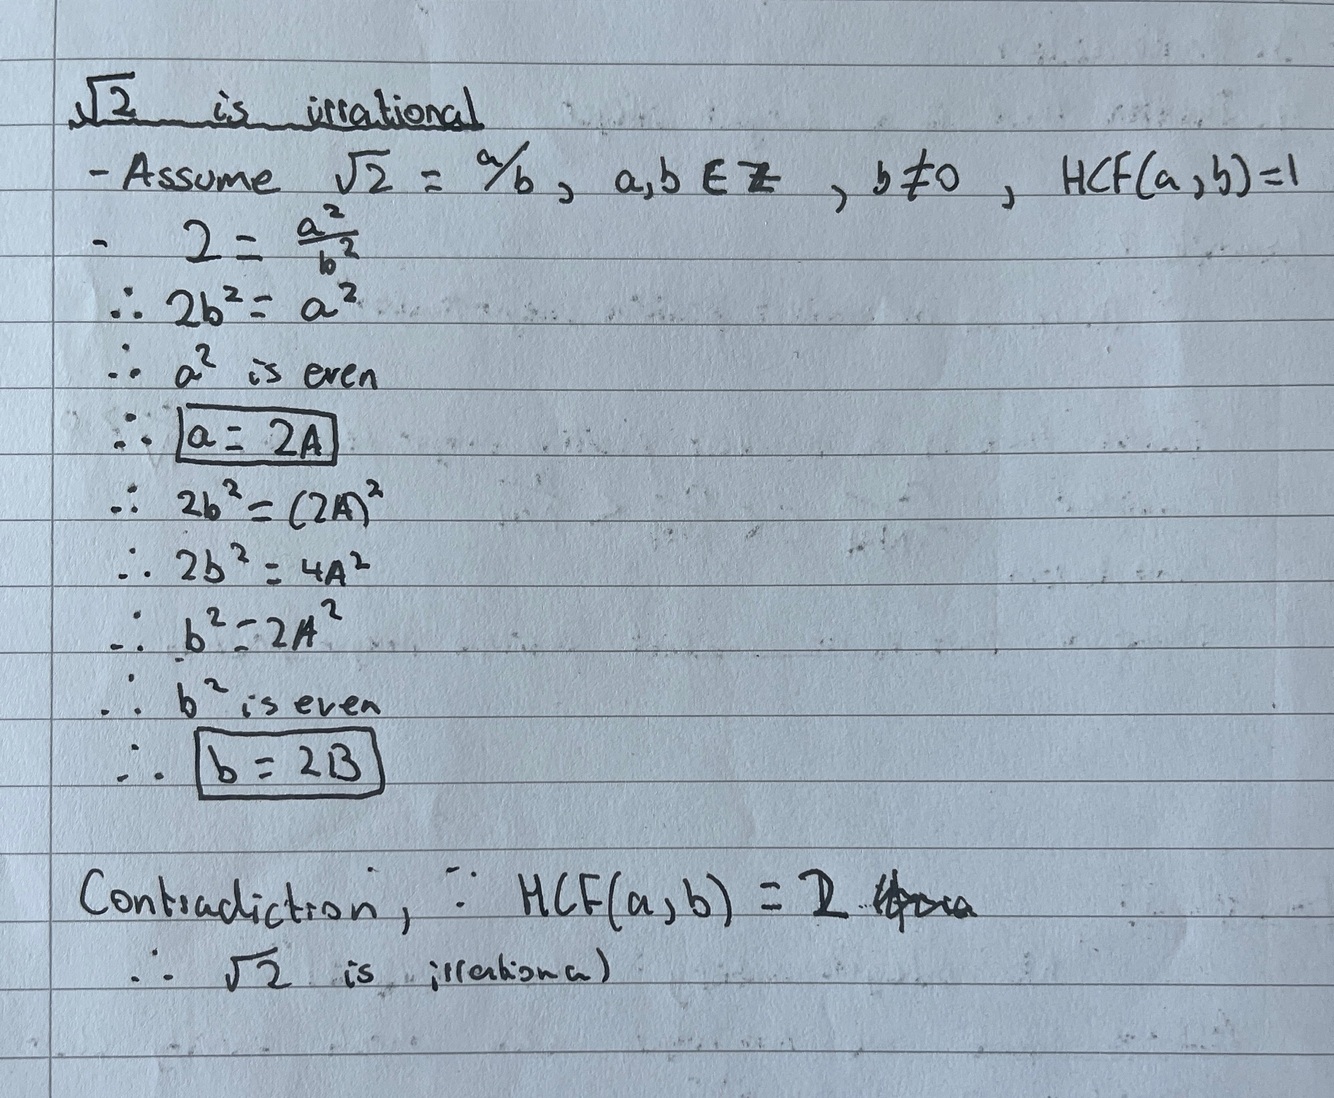 √2 is irrational
- Assume √2 = a/b, a,b ∈ ℤ, b≠0, HCF(a,b)=1
- 2 = a²/b²
∴ 2b² = a²
∴ a² is even
∴ a = 2A
∴ 2b² = (2A)²
∴ 2b² = 4A²
∴ b² = 2A²
∴ b² is even
∴ b = 2B
Contradiction, ∵ HCF(a,b) = 2
∴ √2 is irrational